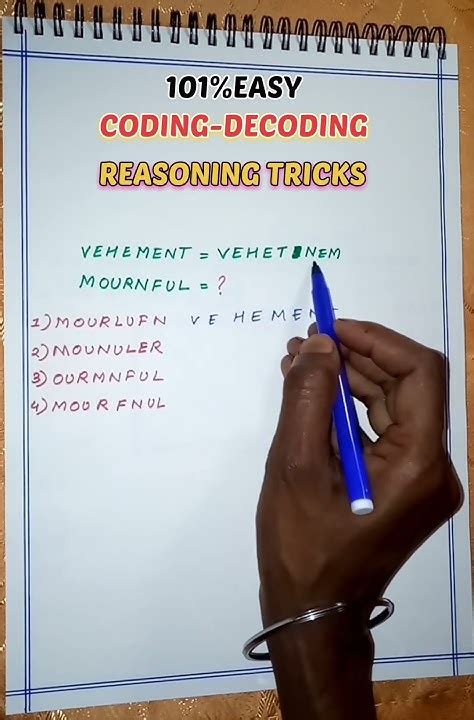 101%EASY
CODING-DECODING
REASONING TRICKS
VEHEMENT = VEHET NEM
MOURNFUL = ?
1) MOURLUFN VEHEMEN
2) MOUNULER
3) OURMNFUL
4) MOURFNUL